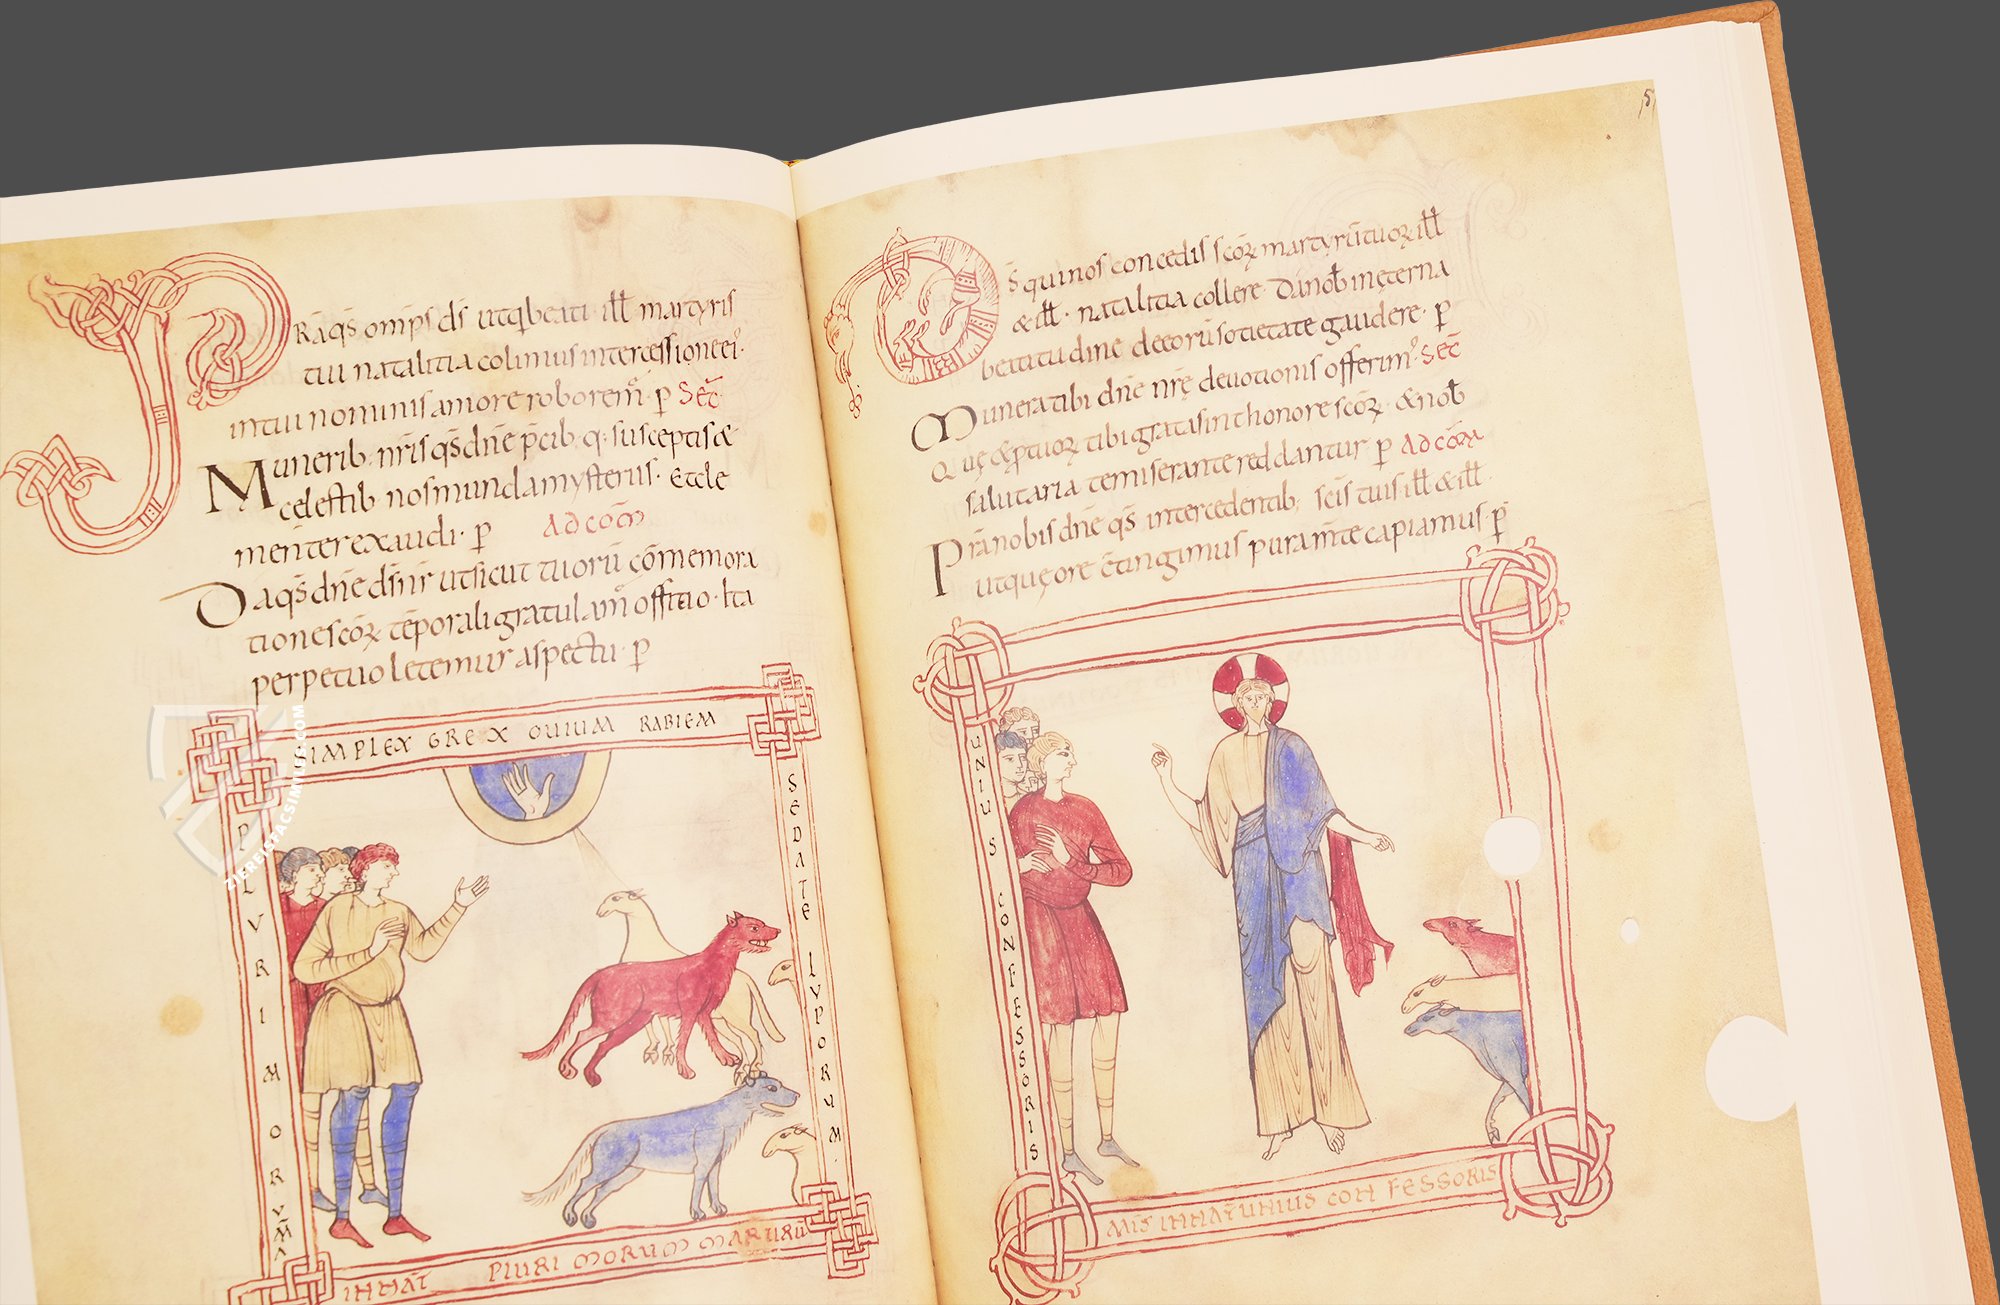 Rāq̄s om̄ps d̄s utq beati · ill̄ martyris
tui natalitia colimus intercessione ei'.
intui nominis amore roborem̄ · p̄ Sec̄
Munerib · nr̄is q̄s dn̄e p̄cib · q · susceptis &
celestib nos munda mysteriis · Et cle
menter exaudi · p̄ Ad com̄
Da q̄s dn̄e d̄s nr̄ ut sicut tuorū cōmemora
tione scōꝝ tēporali gratulam̄ offitio · Ita
perpetuo letemur aspectu · p̄
SIMPLEX GREX OUIUM RABIEM
SEDATE LUPORUM
PLVRIMORVM
IN NAT̄ PLURIMORUM MARTIRŪ
5
D̄s qui nos concedis scōꝝ martyrū tuoꝝ ill̄
& ill̄ · natalitia collere · Da nob̄ in ęterna
beatitudine decorū sotietate gaudere · p̄
Munera tibi dn̄e nr̄ę deuotionis offerim' · Sec̄
Quę & p tuoꝝ tibi grata sint honore scōꝝ · & nob̄
salutaria te miserante reddantur · p̄ Ad com̄
Pra nobis dn̄e q̄s intercedentib; scīs tuis ill̄ & ill̄
ut quę ore cōtingimus pura mēte capiamus · p̄
UNIUS CONFESSORIS
MIS IN NAT̄ UNIUS CONFESSORIS
ZIEREISFACSIMILES.COM